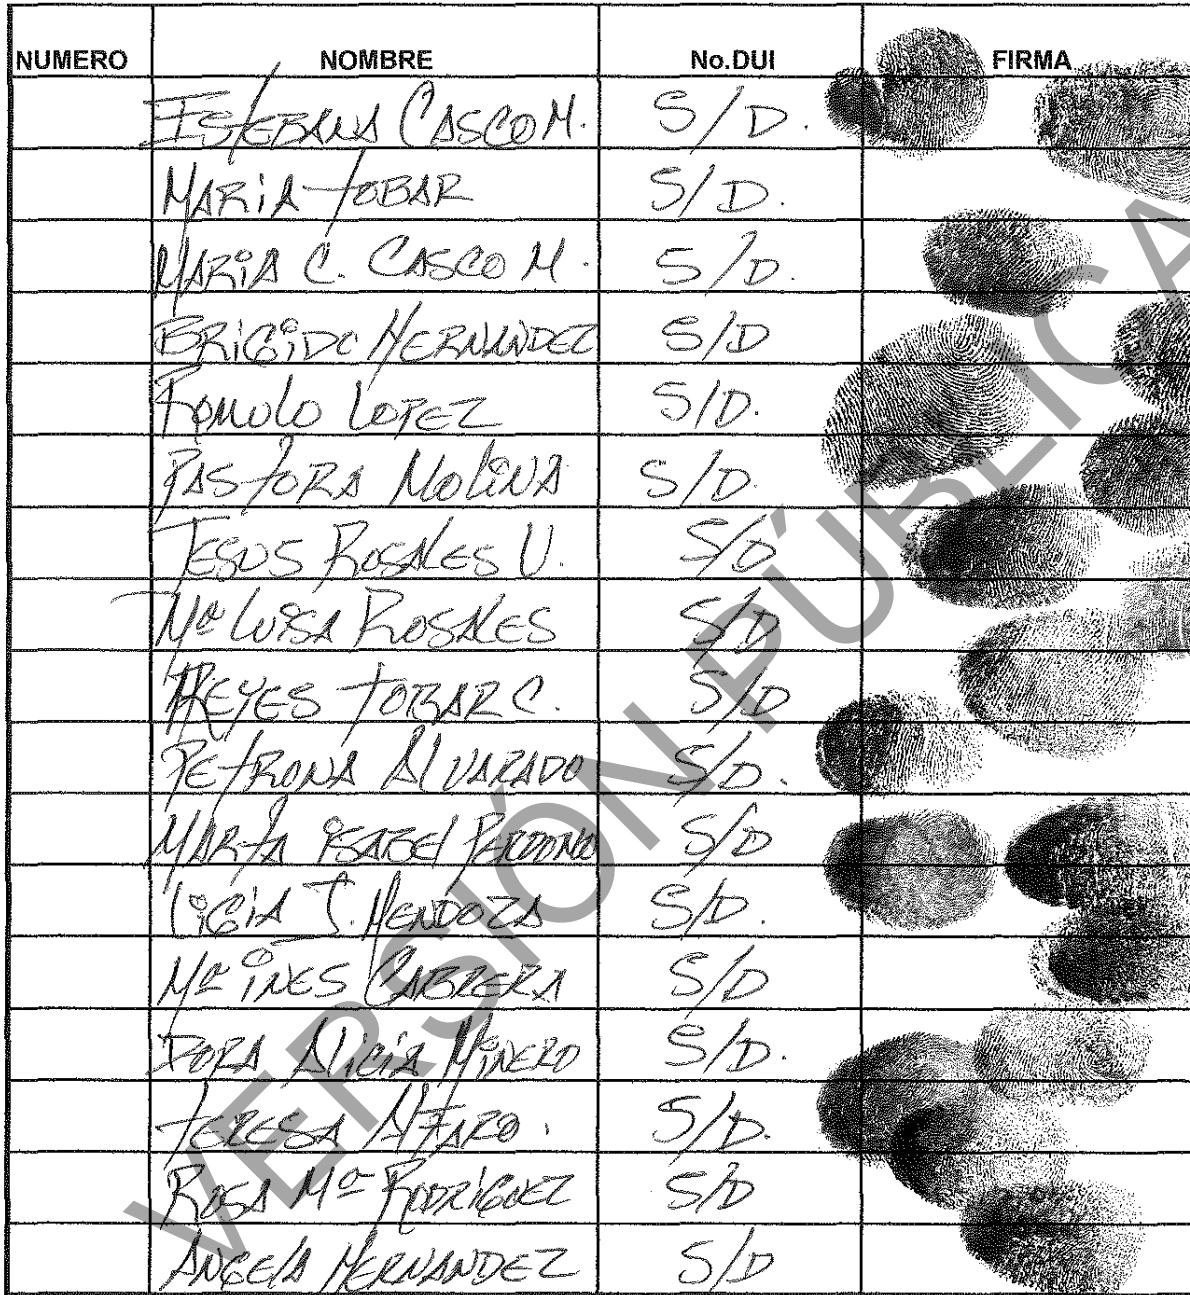 NUMERO NOMBRE No.DUI FIRMA
ESTEBANA CASCO M. S/D.
MARIA TOBAR S/D.
MARIA C. CASCO M. S/D.
BRIGIDO HERNANDEZ S/D
ROMULO LOPEZ S/D.
PASTORA MOLINA S/D.
JESUS ROSALES U. S/D
Mª LUISA ROSALES S/D
REYES TOBAR C. S/D
PETRONA ALVARADO S/D.
MARTA ISABEL PERDOMO S/D
LIGIA T. MENDOZA S/D.
Mª INES CABRERA S/D
DORA ALICIA MINERO S/D.
TERESA ALFARO. S/D.
ROSA Mª RODRIGUEZ S/D
ANGELA HERNANDEZ S/D
VERSIÓN PÚBLICA